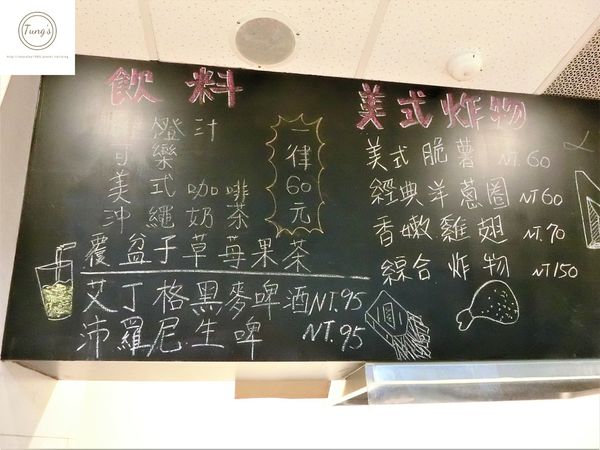 Tung's
飲料
橙汁
可樂
美式咖啡
沖繩奶茶
一律60元
覆盆子草莓果茶
艾丁格黑麥啤酒NT.95
沛羅尼生啤 NT.95
美式炸物
美式脆薯 NT.60
經典洋蔥圈 NT60
香嫩雞翅 NT.70
綜合炸物 NT150